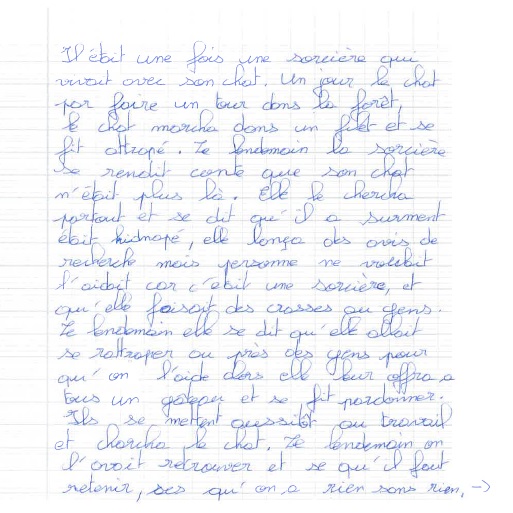 Il était une fois une sorcière qui
vivait avec son chat. Un jour le chat
par faire un tour dans la forêt,
le chat marcha dans un filet et se
fit attrapé. Le lendemain la sorcière
se rendit conte que son chat
n'était plus là. Elle le chercha
partout et se dit qu'il a surment
était kidnapé, elle lança des avis de
recherche mais personne ne voulait
l'aidait car c'était une sorcière, et
qu'elle faisait des crasses au gens.
Le lendemain elle se dit qu'elle allait
se rattraper au près des gens pour
qu'on l'aide alors elle leur offra a
tous un gâteau et se fit pardonner.
Ils se mettent aussitôt au travail
et chercha le chat. Le lendemain on
l'avait retrouver et se qu'il faut
retenir, ses qu'on a rien sans rien. →